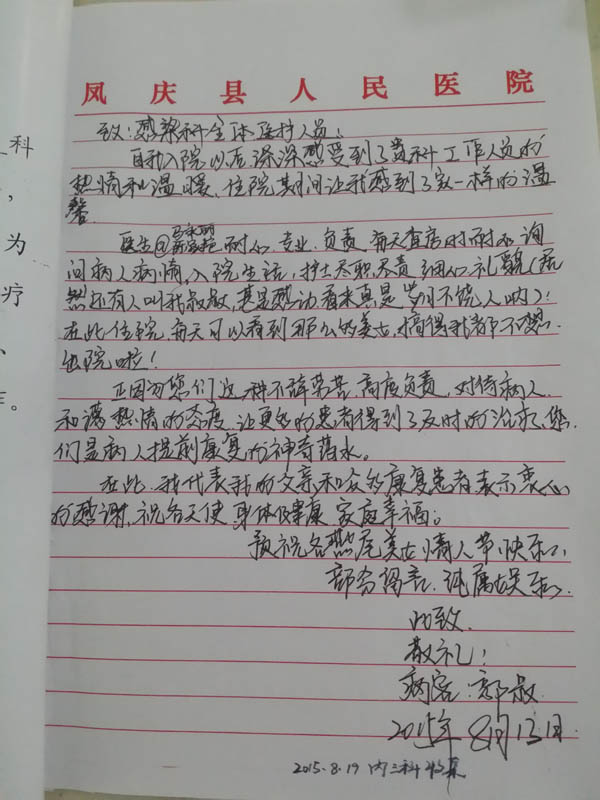 凤庆县人民医院
致:感染科全体医护人员:
自我入院以后深深感受到了贵科工作人员的
热情和温暖、住院其间让我感到了家一样的温
馨
医生@ 耐心、专业、负责、每天查房时耐心询
问病人病情,入院生活,护士尽职、尽责、细心礼貌(居
然还有人叫我叔叔,甚是感动看来真是岁月不饶人呐)!
在此住院,每天可以看到那么的美女,搞得我都不想
出院啦!
正因为您们这种不辞劳苦、高度负责,对待病人
和蔼热情的态度,让更多的患者得到了及时的治疗、您
们是病人提前康复的神奇药水。
在此,我代表我的父亲和众多康复患者表示衷心
的感谢,祝各天使身体健康 家庭幸福;
预祝各燕尾美女情人节快乐
部分留言,纯属娱乐
此致
敬礼!
病客:郭叔
2015年8月13日
2015.8.19 内三科收集
科
,
为
疗
、
。